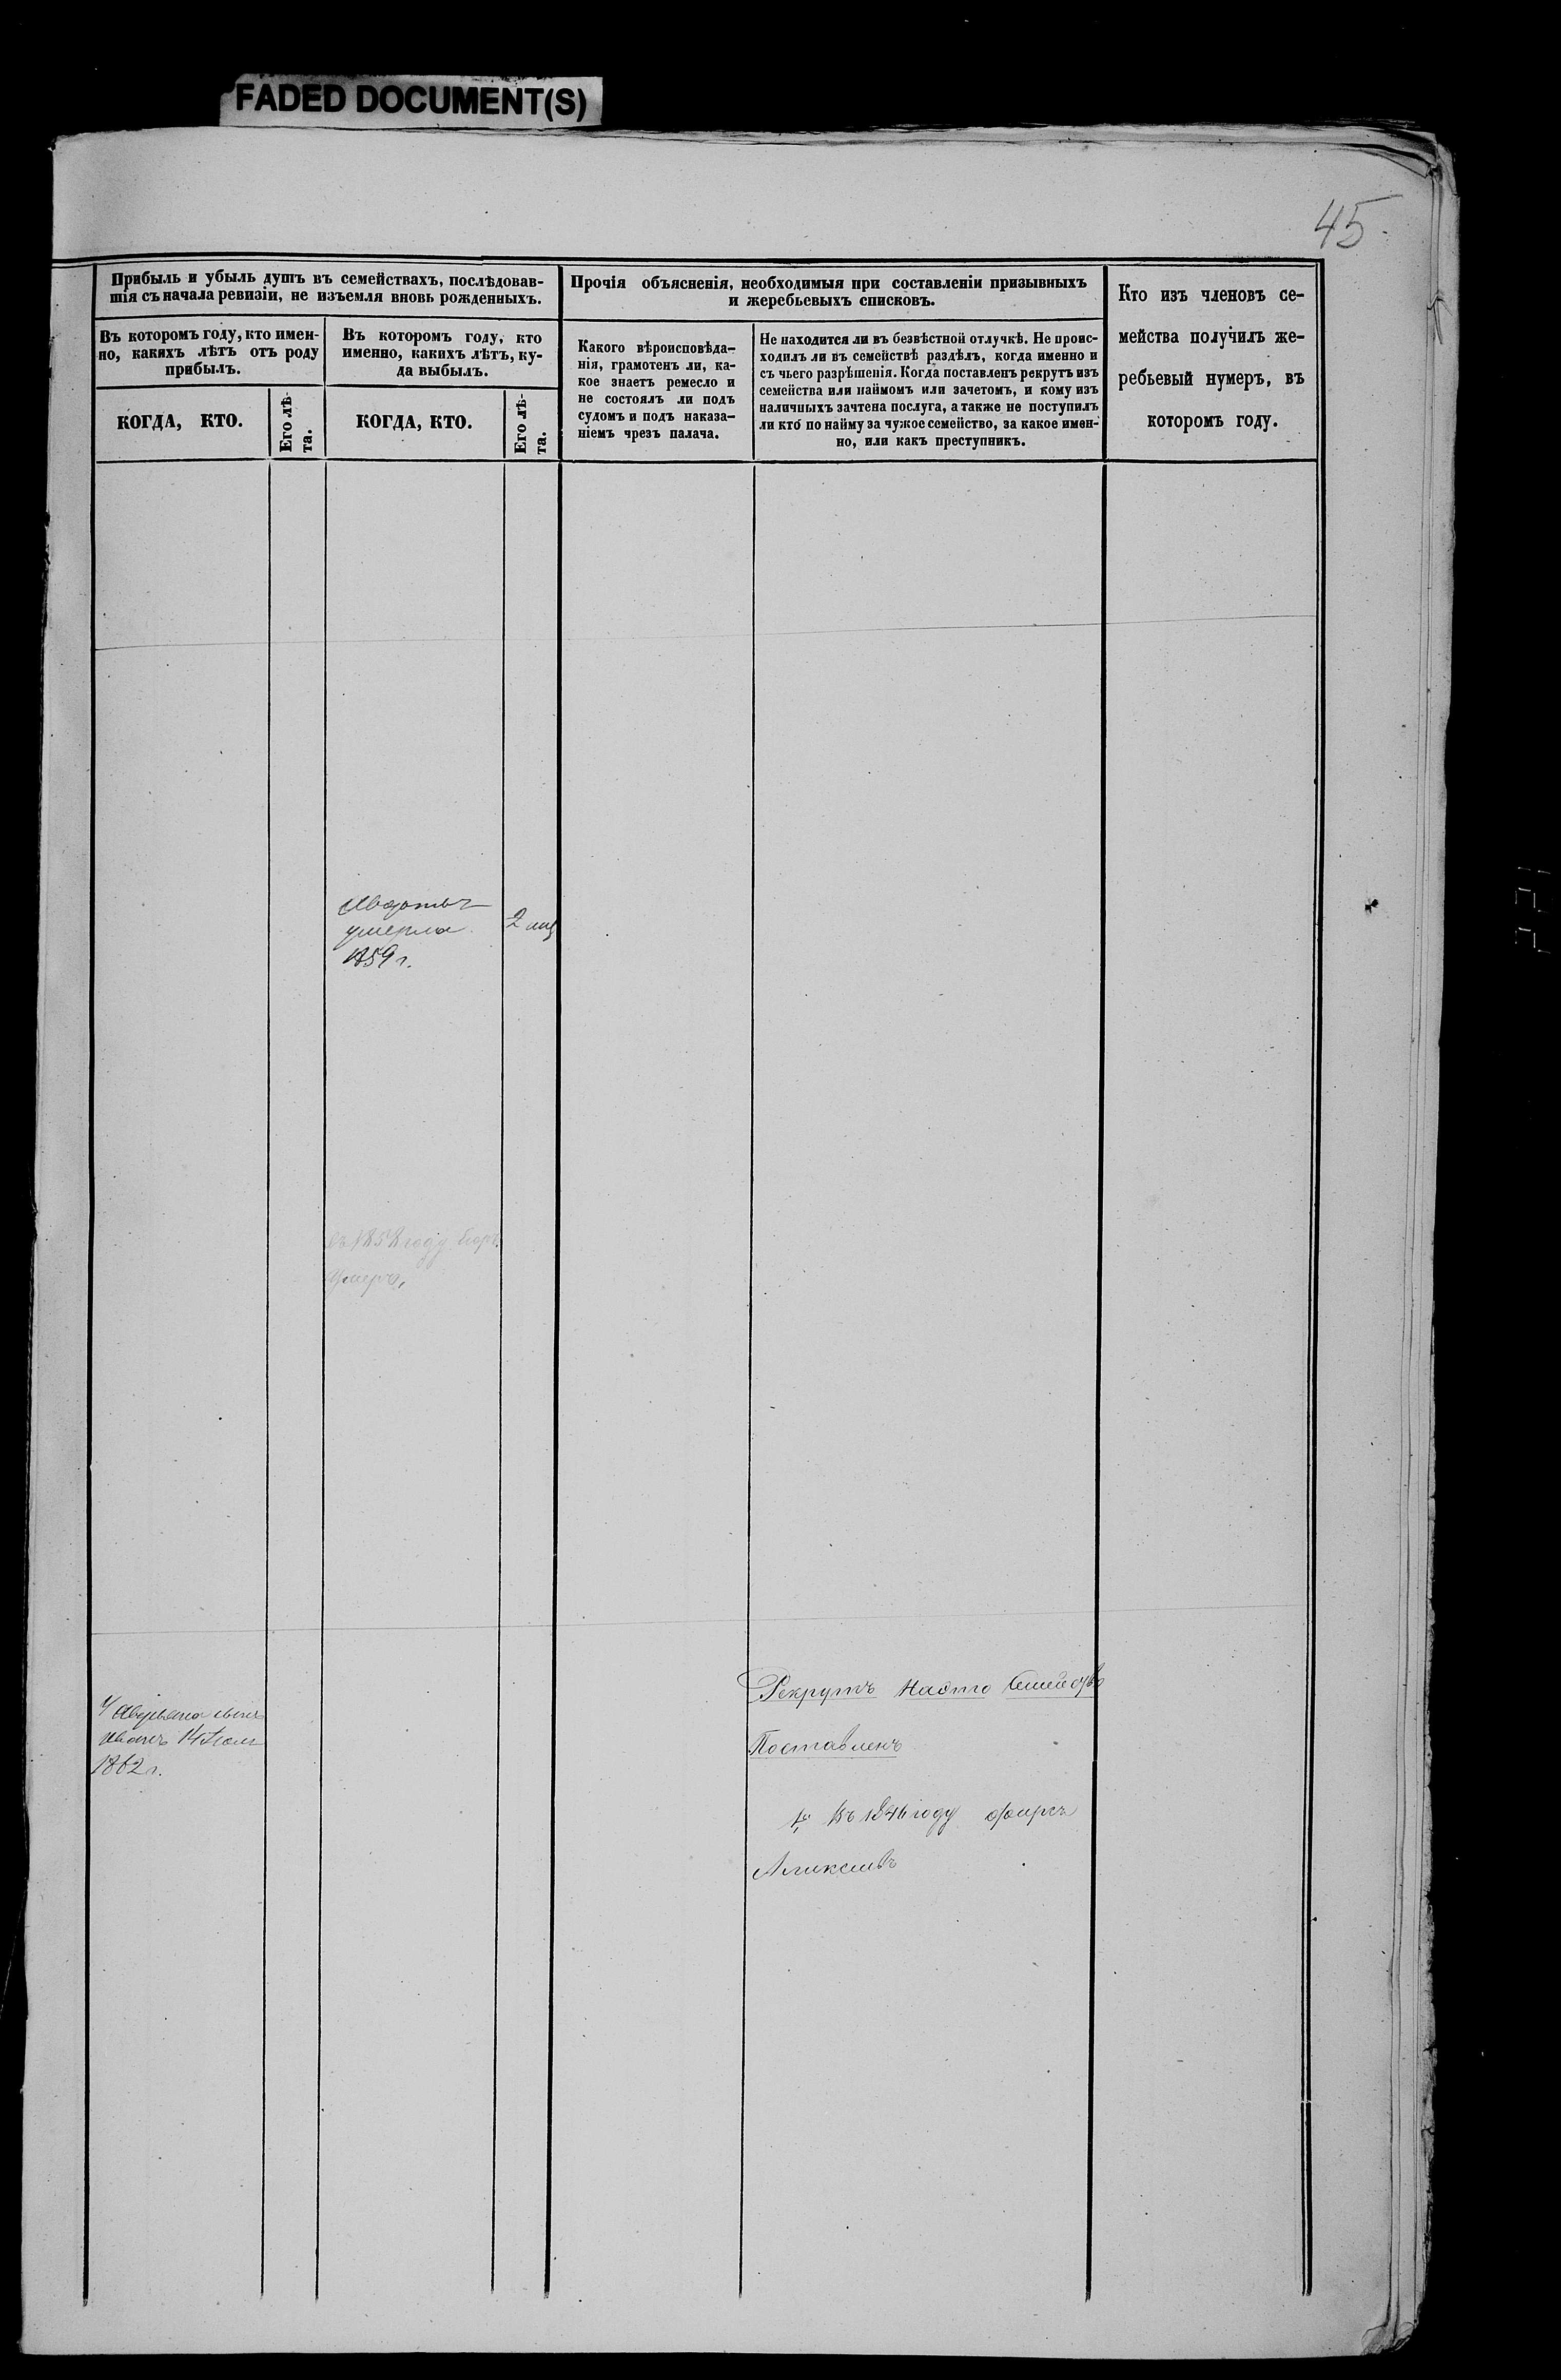 FADED DOCUMENT(S)
45
Прибыль и убыль душъ въ семействахъ, послѣдовав-
шія съ начала ревизіи, не изъемля вновь рожденныхъ.
Въ которомъ году, кто имен-
но, какихъ лѣтъ отъ роду
прибылъ.
КОГДА, КТО.
Его лѣ-
та.
Въ которомъ году, кто
именно, какихъ лѣтъ, ку-
да выбылъ.
КОГДА, КТО.
Его лѣ-
та.
Прочія объясненія, необходимыя при составленіи призывныхъ
и жеребьевыхъ списковъ.
Какого вѣроисповѣда-
нія, грамотенъ ли, ка-
кое знаетъ ремесло и
не состоялъ ли подъ
судомъ и подъ наказа-
ніемъ чрезъ палача.
Не находится ли въ безвѣстной отлучкѣ. Не проис-
ходилъ ли въ семействѣ раздѣлъ, когда именно и
съ чьего разрѣшенія. Когда поставленъ рекрутъ изъ
семейства или наймомъ или зачетомъ, и кому изъ
наличныхъ зачтена послуга, а также не поступилъ
ли кто по найму за чужое семейство, за какое имен-
но, или какъ преступникъ.
Кто изъ членовъ се-
мейства получилъ же-
ребьевый нумеръ, въ
которомъ году.
умерла
1859 г.
2
въ 1858 году
умеръ,
Иванъ 14
1862 г.
Рекрутъ
Поставленъ
въ 1846 году